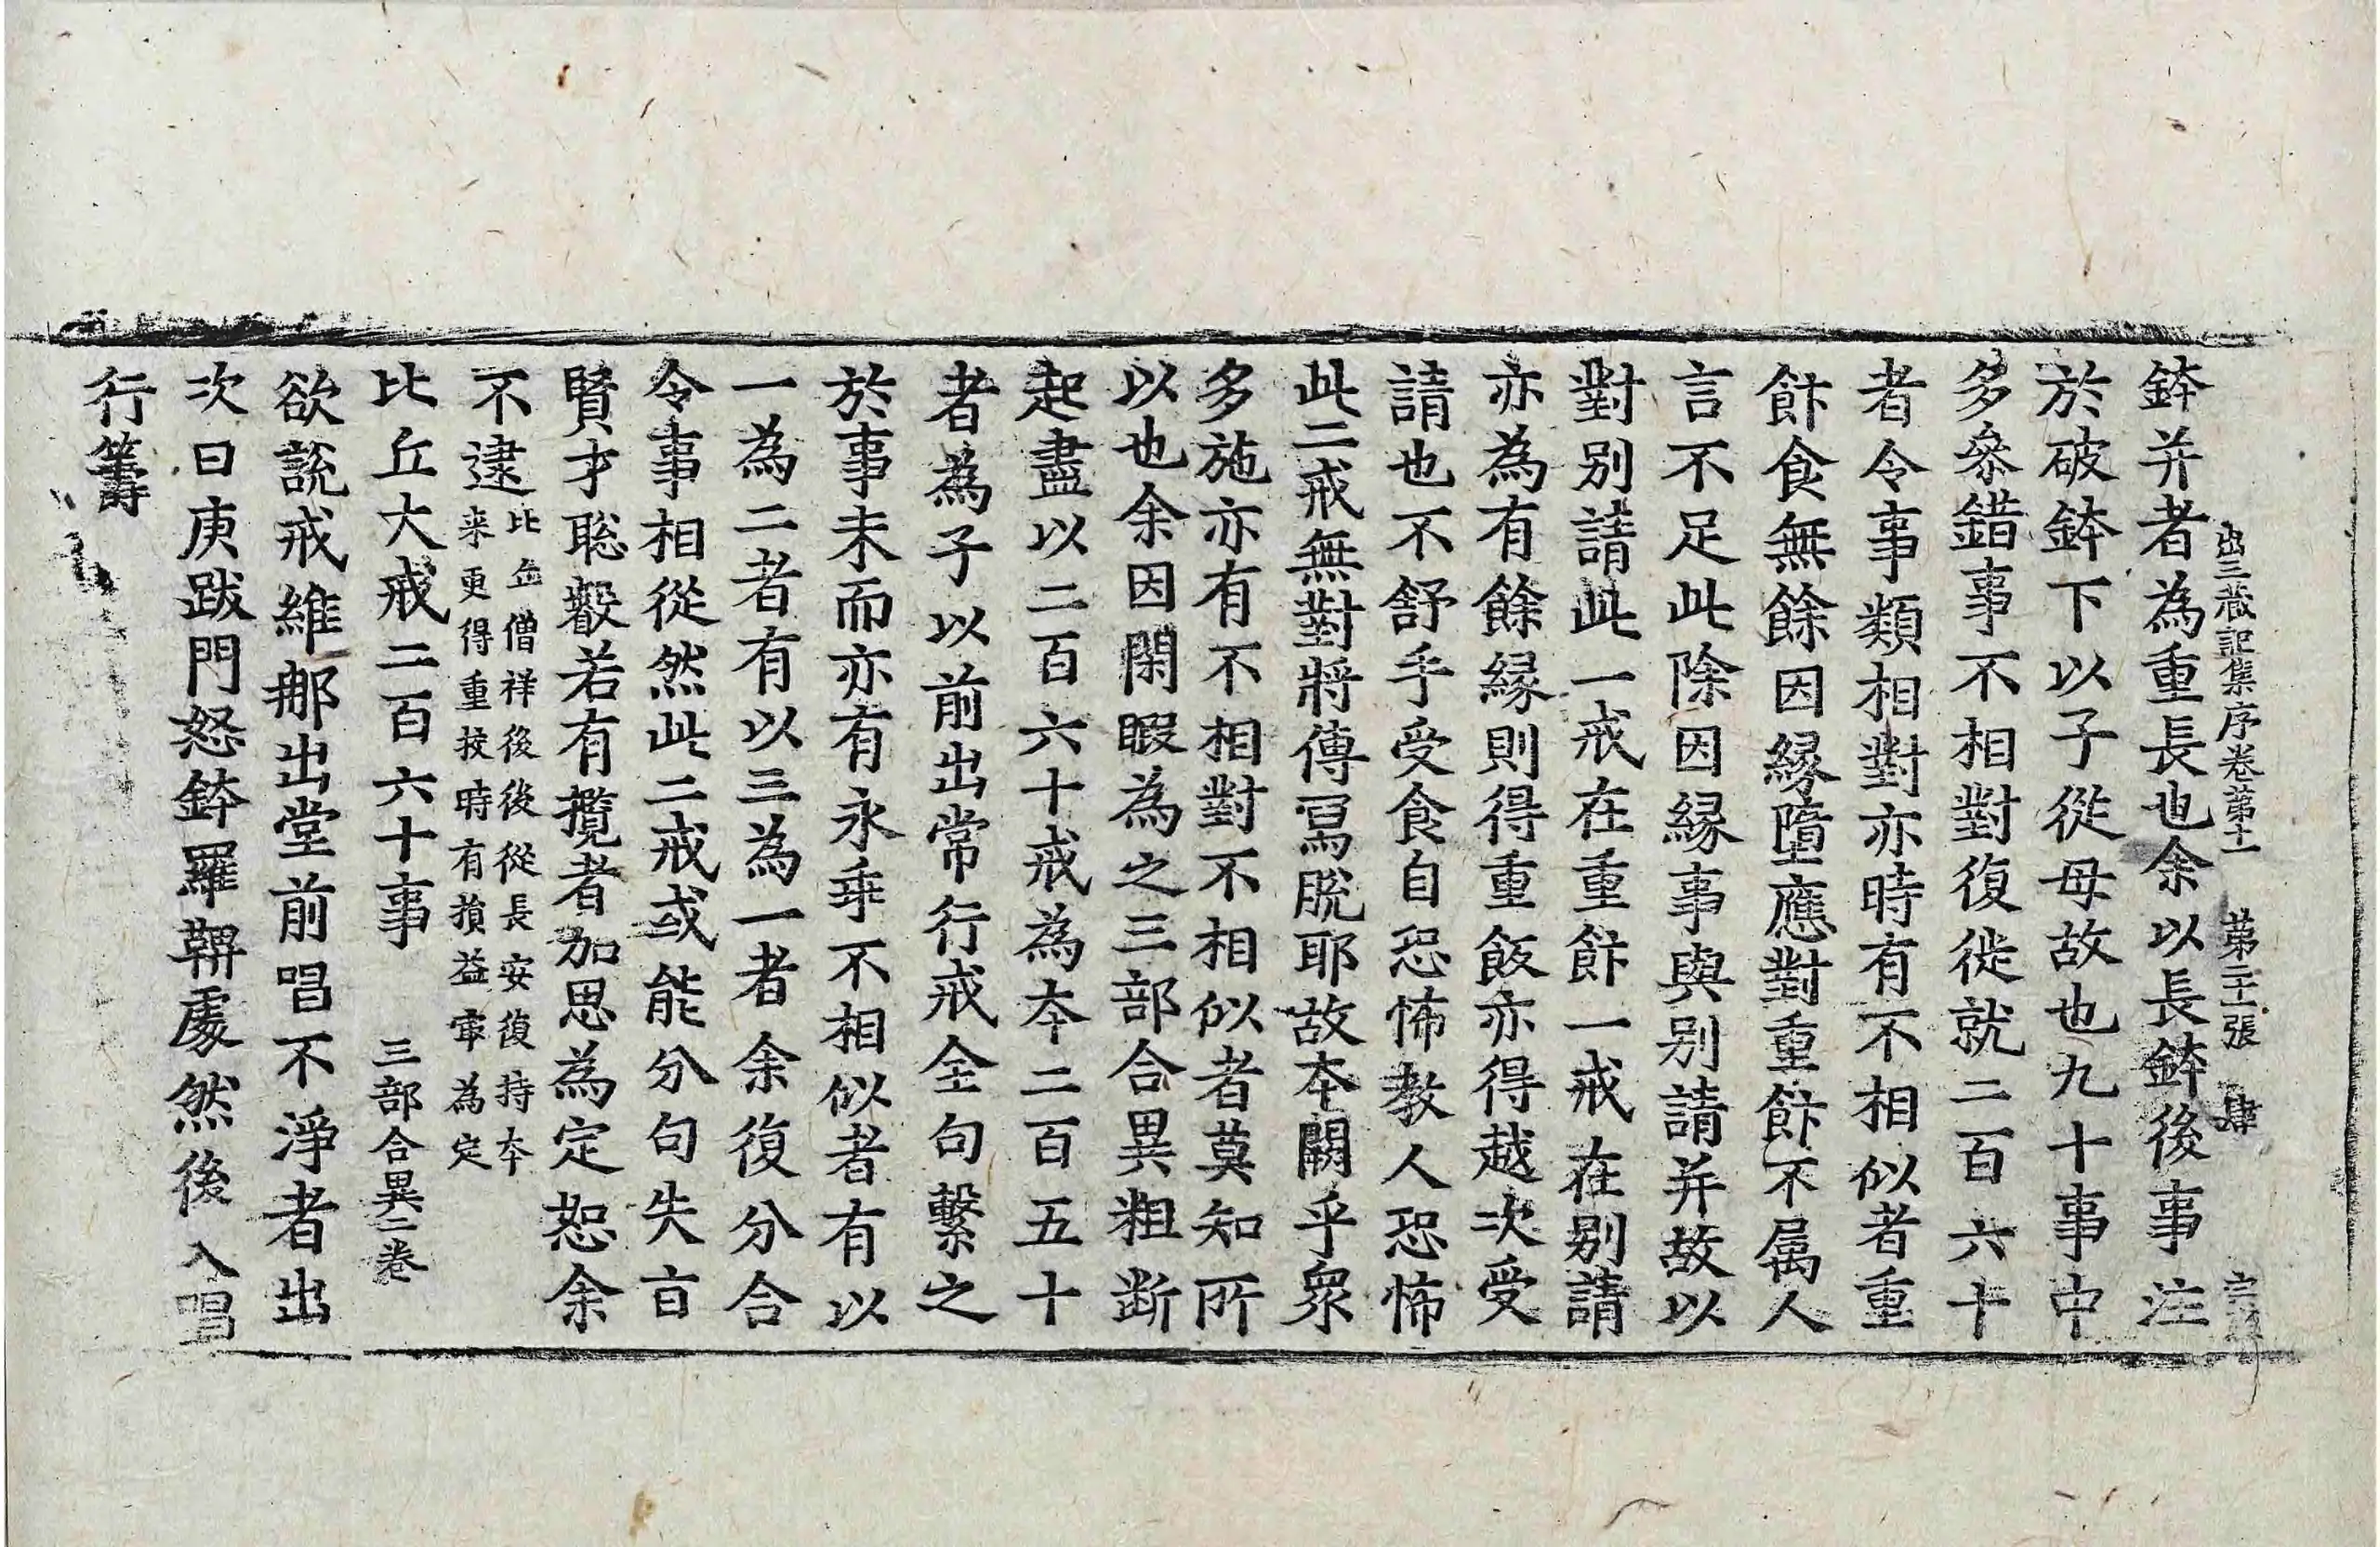 出三藏記集序卷第十一　第二十一張　肆
鉢并者為重長也余以長鉢後事注
於破鉢下以子從母故也九十事中
多叅錯事不相對復徙就二百六十
者令事類相對亦時有不相似者重
飵食無餘因縁墮應對重飵不属人
言不足此除因縁事與别請并故以
對别請此一戒在重飵一戒在别請
亦為有餘縁則得重飯亦得越次受
請也不舒手受食自恐怖教人恐怖
此二戒無對將傳冩脫耶故夲闕乎衆
多施亦有不相對不相似者莫知所
以也余因閑暇為之三部合異粗断
起盡以二百六十戒為夲二百五十
者為子以前出常行戒全句繫之
於事末而亦有永乖不相似者有以
一為二者有以三為一者余復分合
令事相從然此二戒或能分句失㫖
賢才聡叡若有攬者加思為定恕余
不逮比丘僧祥後後從長安復持夲
来更得重挍時有損益㝡為定
比丘大戒二百六十事　三部合異二卷
欲說戒維那出堂前唱不淨者出
次曰庚跋門怒鉢羅鞞處然後入唱
行籌